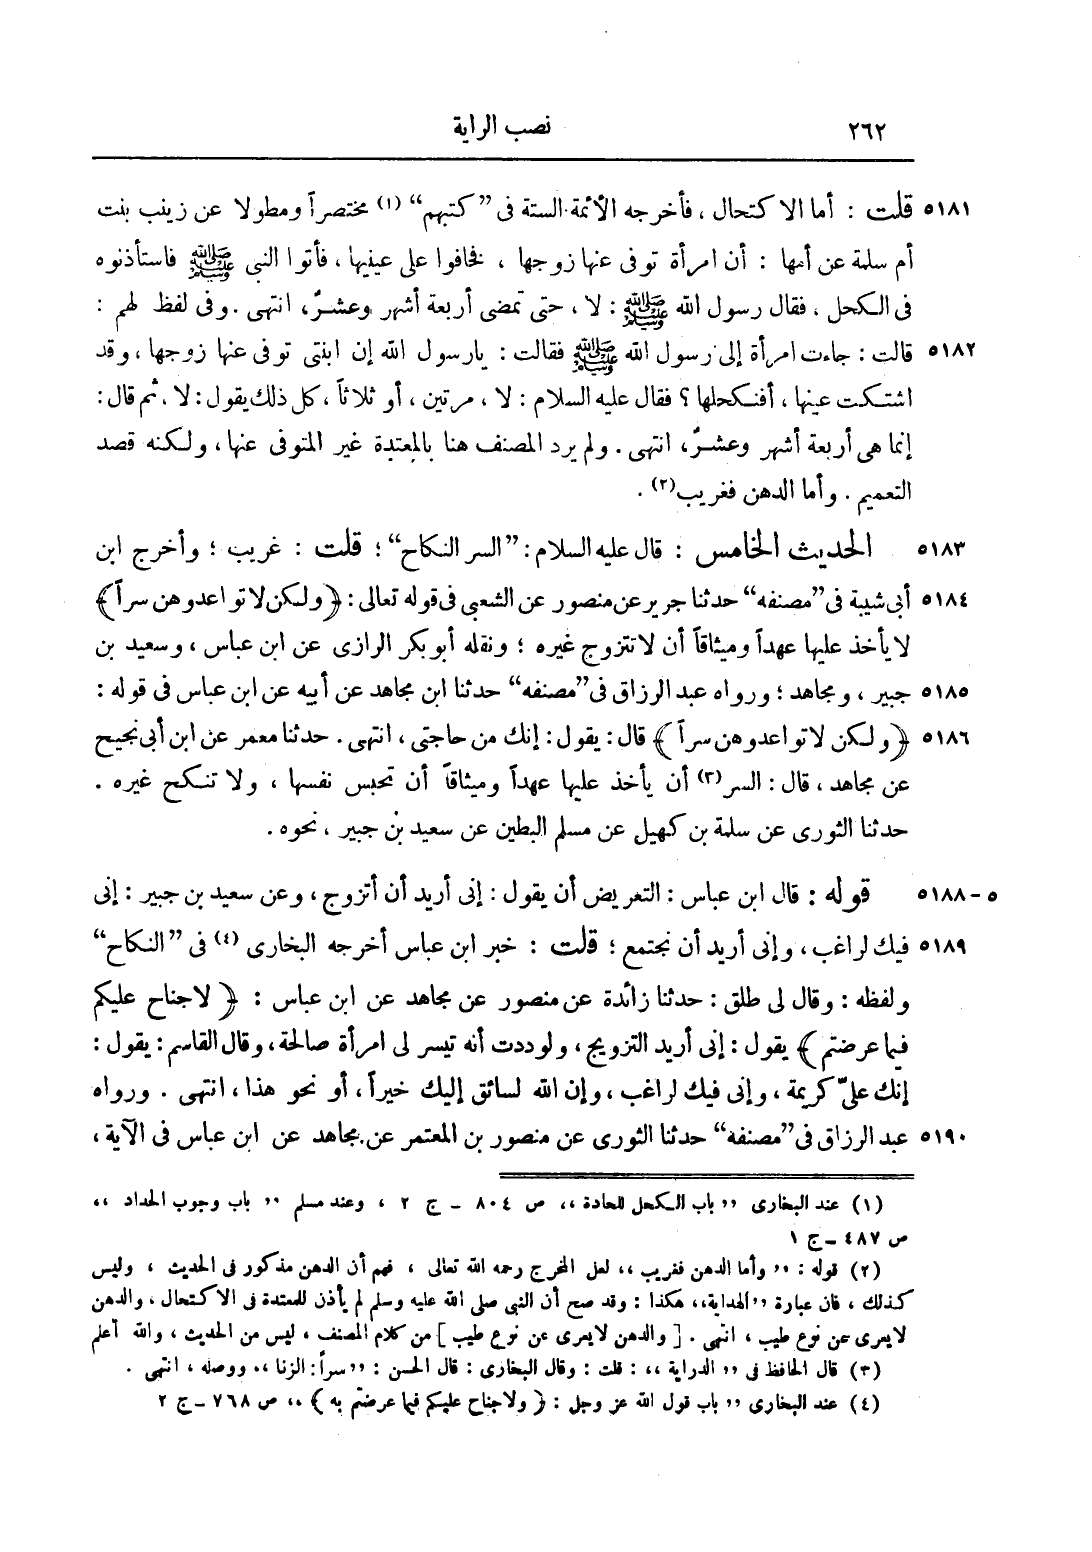 ٢٦٢ نصب الراية
٥١٨١ قلت : أما الاكتحال ، فأخرجه الأئمة الستة فى "كتبهم" (١) مختصراً ومطولا عن زينب بنت
أم سلمة عن أمها : أن امرأة توفى عنها زوجها ، فخافوا على عينيها ، فأتوا النبى ﷺ فاستأذنوه
فى الكحل ، فقال رسول الله ﷺ : لا ، حتى تمضى أربعة أشهر وعشرٌ ، انتهى . وفى لفظ لهم :
٥١٨٢ قالت : جاءت امرأة إلى رسول الله ﷺ فقالت : يارسول الله إن ابنتى توفى عنها زوجها ، وقد
اشتكت عينها ، أفنكحلها ؟ فقال عليه السلام : لا ، مرتين ، أو ثلاثاً ، كل ذلك يقول : لا . ثم قال :
إنما هى أربعة أشهر وعشرٌ ، انتهى . ولم يرد المصنف هنا بالمعتدة غير المتوفى عنها ، ولكنه قصد
التعميم . وأما الدهن فغريب (٢) .
٥١٨٣ الحديث الخامس : قال عليه السلام : "السر النكاح" ؛ قلت : غريب ؛ وأخرج ابن
٥١٨٤ أبى شيبة فى "مصنفه" حدثنا جرير عن منصور عن الشعبى فى قوله تعالى : ﴿ ولكن لا تواعدوهن سراً ﴾
لا يأخذ عليها عهداً وميثاقاً أن لا تتزوج غيره ؛ ونقله أبو بكر الرازى عن ابن عباس ، وسعيد بن
٥١٨٥ جبير ، ومجاهد ؛ ورواه عبد الرزاق فى "مصنفه" حدثنا ابن مجاهد عن أبيه عن ابن عباس فى قوله :
٥١٨٦ ﴿ ولكن لا تواعدوهن سراً ﴾ قال : يقول : إنك من حاجتى ، انتهى . حدثنا معمر عن ابن أبى نجيح
عن مجاهد ، قال : السر (٣) أن يأخذ عليها عهداً وميثاقاً أن تحبس نفسها ، ولا تنكح غيره .
حدثنا الثورى عن سلمة بن كهيل عن مسلم البطين عن سعيد بن جبير ، نحوه .
٥ - ٥١٨٨ قوله : قال ابن عباس : التعريض أن يقول : إنى أريد أن أتزوج ، وعن سعيد بن جبير : إنى
٥١٨٩ فيك لراغب ، وإنى أريد أن نجتمع ؛ قلت : خبر ابن عباس أخرجه البخارى (٤) فى "النكاح"
ولفظه : وقال لى طلق : حدثنا زائدة عن منصور عن مجاهد عن ابن عباس : ﴿ لا جناح عليكم
فيما عرضتم ﴾ يقول : إنى أريد التزويج ، ولوددت أنه تيسر لى امرأة صالحة ، وقال القاسم : يقول :
إنك علىّ كريمة ، وإنى فيك لراغب ، وإن الله لسائق إليك خيراً ، أو نحو هذا ، انتهى . ورواه
٥١٩٠ عبد الرزاق فى "مصنفه" حدثنا الثورى عن منصور بن المعتمر عن مجاهد عن ابن عباس فى الآية ،
(١) عند البخارى ,, باب الكحل للحادة ،، ص ٨٠٤ ـ ج ٢ ، وعند مسلم ,, باب وجوب الحداد ،،
ص ٤٨٧ ـ ج ١
(٢) قوله : ,, وأما الدهن فغريب ،، لعل المخرج رحمه الله تعالى ، فهم أن الدهن مذكور فى الحديث ، وليس
كذلك ، فان عبارة ,, الهداية ،، هكذا : وقد صح أن النبى صلى الله عليه وسلم لم يأذن للمعتدة فى الاكتحال ، والدهن
لا يعرى عن نوع طيب ، انتهى . [ والدهن لا يعرى عن نوع طيب ] من كلام المصنف ، ليس من الحديث ، والله أعلم
(٣) قال الحافظ فى ,, الدراية ،، : قلت : وقال البخارى : قال الحسن : ,, سراً : الزنا ،، ووصله ، انتهى .
(٤) عند البخارى ,, باب قول الله عز وجل : ﴿ ولا جناح عليكم فيما عرضتم به ﴾ ،، ص ٧٦٨ ـ ج ٢